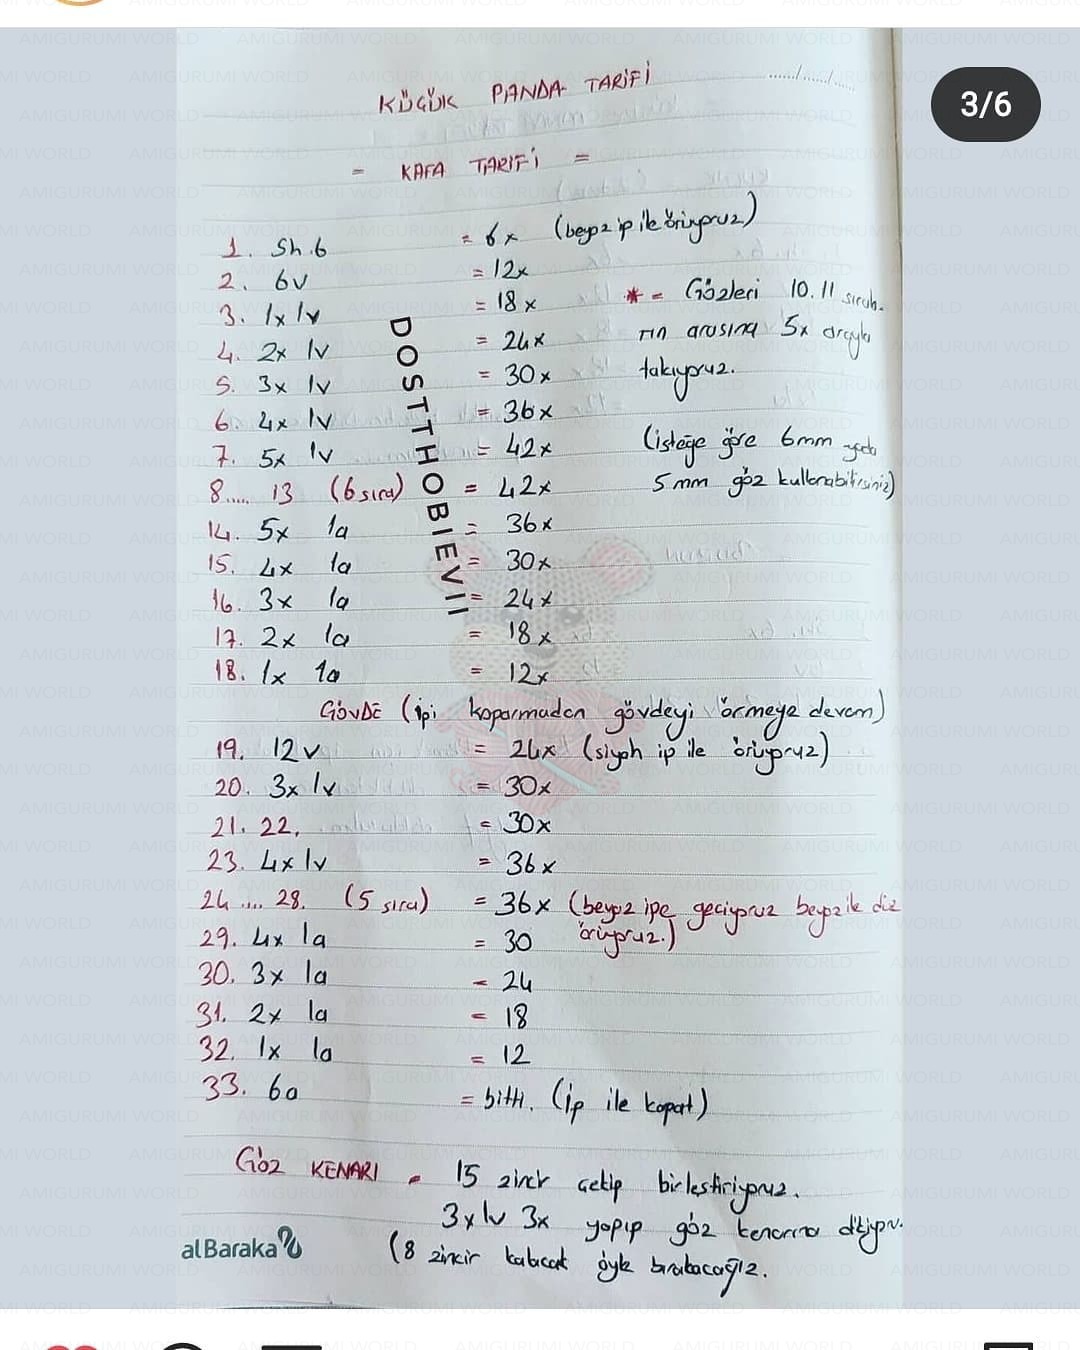 3/6
KÜÇÜK PANDA TARİFİ
= KAFA TARİFİ =
1. Sh.6 = 6x (beyaz ip ile örüyoruz)
2. 6v = 12x
3. 1x 1v = 18x
* = Gözleri 10.11 sırala-
4. 2x 1v = 24x
rın arasına 5x arayla
5. 3x 1v = 30x
takıyoruz.
6. 4x 1v = 36x
7. 5x 1v = 42x
(isteğe göre 6mm yada
8..... 13 (6 sıra) = 42x
5mm göz kullanabilirsiniz)
14. 5x 1a = 36x
15. 4x 1a = 30x
16. 3x 1a = 24x
17. 2x 1a = 18x
18. 1x 1a = 12x
DOSTTHOBIEVII
GÖVDE (İpi koparmadan gövdeyi örmeye devam)
19. 12v = 24x (siyah ip ile örüyoruz)
20. 3x 1v = 30x
21. 22. = 30x
23. 4x 1v = 36x
24 ... 28. (5 sıra) = 36x (beyaz ipe geçiyoruz beyaz ile düz
örüyoruz.)
29. 4x 1a = 30
30. 3x 1a = 24
31. 2x 1a = 18
32. 1x 1a = 12
33. 6a = bitti. (İp ile kapat)
GÖZ KENARI = 15 zincir çekip birleştiriyoruz.
3x 1v 3x yapıp göz kenarına dikiyoru.
(8 zincir kalacak öyle bırakacağız.
alBaraka
AMIGURUMI WORLD